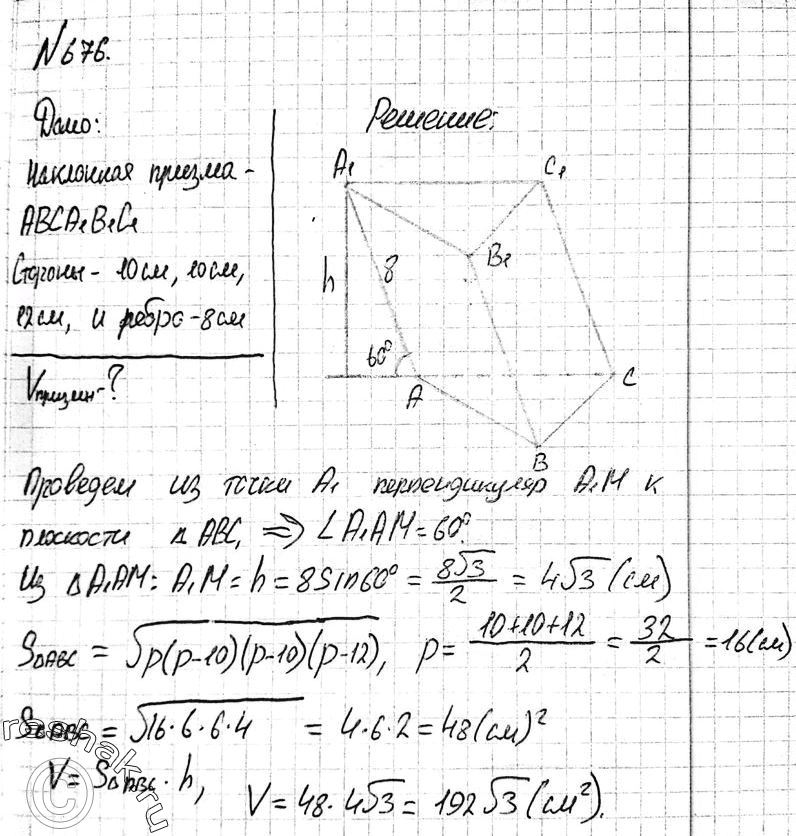 №676.
Дано:
Наклонная призма -
ABCA₁B₁C₁
Стороны - 10 см, 10 см,
12 см, и ребро - 8 см
Vпризм - ?
Решение:
A₁
C₁
B₁
h
8
60°
A
C
B
Проведем из точки A₁ перпендикуляр A₁M к
плоскости △ABC, ⇒ ∠A₁AM = 60°.
Из △A₁AM: A₁M = h = 8sin60° = 8√3/2 = 4√3 (см)
S△ABC = √p(p-10)(p-10)(p-12), p = (10+10+12)/2 = 32/2 = 16(см)
S△ABC = √16·6·6·4 = 4·6·2 = 48(см)²
V = S△ABC · h, V = 48·4√3 = 192√3 (см²).
©reshak.ru